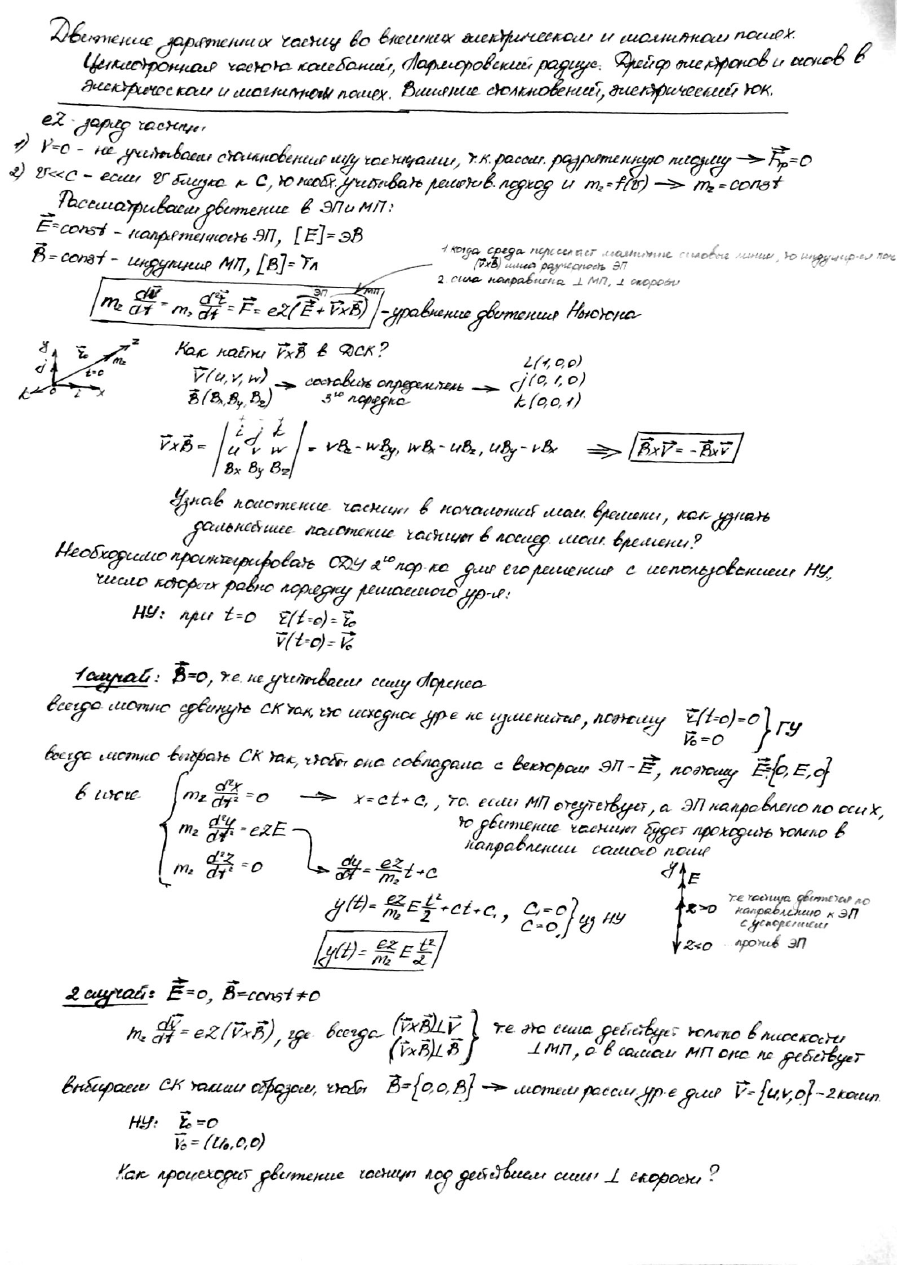 Движение заряженных частиц во внешних электрическом и магнитном полях.
Циклотронная частота колебаний, Ларморовский радиус. Дрейф электронов и ионов в
электрическом и магнитном полях. Влияние столкновений, электрический ток.
eZ - заряд частицы
1) ν=0 - не учитываем столкновения м/у частицами, т.к. рассм. разряженную плазму → F⃗тр=0
2) v≪c - если v близка к c, то необх. учитывать релятив. подход и m₂=f(v) → m₂=const
Рассматриваем движение в ЭП и МП:
E⃗=const - напряженность ЭП, [E]=ЭВ
B⃗=const - индукция МП, [B]=Тл
1 когда среда пересекает магнитные силовые линии, то индуцир-ся поле
(v⃗×B⃗) и/или разность ЭП
2 сила направлена ⊥ МП, ⊥ скорости
m₂ dv⃗/dt = m₂ d²r⃗/dt² = F⃗ = eZ(E⃗ + v⃗×B⃗) - уравнение движения Ньютона
ЭП МП
y z r⃗₀ m₂ t=0 j k 0 i x
Как найти v⃗×B⃗ в ДСК?
V⃗(u,v,w)
B⃗(Bx,By,Bz) → составить определитель 3го порядка → i(1,0,0)
j(0,1,0)
k(0,0,1)
v⃗×B⃗ = | i j k |
| u v w |
| Bx By Bz | = vBz - wBy, wBx - uBz, uBy - vBx ⇒ B⃗×V⃗ = -B⃗×v⃗
Узнав положение частицы в начальный мом. времени, как узнать
дальнейшее положение частицы в послед. мом. времени?
Необходимо проинтегрировать ОДУ 2го пор-ка для его решения с использованием НУ,
число которых равно порядку решаемого ур-я:
НУ: при t=0 r⃗(t=0)=r⃗₀
v⃗(t=0)=v⃗₀
1 случай: B⃗=0, т.е. не учитываем силу Лоренса
всегда можно сдвинуть СК так, что исходное ур-е не изменится, поэтому r⃗(t=0)=0
v⃗₀=0 } ГУ
всегда можно выбрать СК так, чтобы она совпадала с вектором ЭП - E⃗, поэтому E⃗={0,E,0}
в итоге { m₂ d²x/dt² = 0 → x=ct+c₁, т.о. если МП отсутствует, а ЭП направлено по оси x,
то движение частицы будет проходить только в
направлении самого поля
m₂ d²y/dt² = eZE
m₂ d²z/dt² = 0
dy/dt = eZ/m₂ t + c
y(t) = eZ/m₂ E t²/2 + ct + c₁, c₁=0
c=0 } из НУ
y(t) = eZ/m₂ E t²/2
y E
Z>0
Z<0
т.е частица движется по
направлению к ЭП
с ускорением
против ЭП
2 случай: E⃗=0, B⃗=const≠0
m₂ dv⃗/dt = eZ(v⃗×B⃗), где всегда (v⃗×B⃗)⊥v⃗
(v⃗×B⃗)⊥B⃗ } т.е эта сила действует только в плоскости
⊥МП, а в самом МП она не действует
Выбираем СК таким образом, чтобы B⃗={0,0,B} → можем рассм. ур-е для V⃗={u,v,0} - 2 комп.
НУ: r⃗₀=0
v⃗₀=(u₀,0,0)
Как происходит движение частицы под действием силы ⊥ скорости?